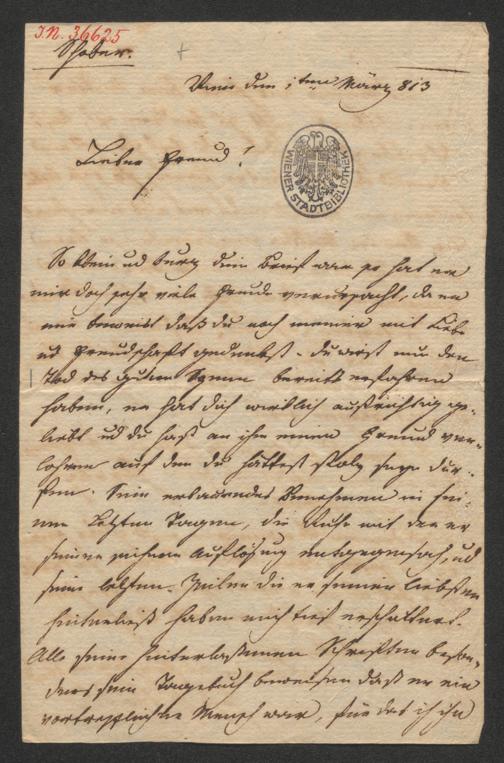 I.N. 36625
Schober.
Wien den 1ten März 813
Lieber Freund!
WIENER STADTBIBLIOTHEK
So klein ud kurz dein Brief war so hat er
mir doch sehr viele Freude verursacht, da er
mir beweist daß du noch meiner mit Liebe
ud Freundschaft gedenkst. du wirst nun den
Tod des guten Senn bereits erfahren
haben, er hat dich wirklich aufrichtig ge-
liebt ud du hast an ihm einen Freund ver-
lohren auf den du hättest stolz seyn dür-
fen. Sein Benehmen in sei-
nen letzten Tagen, die Ruhe mit der er
seiner Auflösung entgegensah, ud
seine letzten Zeilen die er seinen Liebsten
hinterließ haben mich tief erschüttert.
Alle seine hinterlassenen Schriften beson-
ders sein Tagebuch beweisen daß er ein
vortrefflicher Mensch war, für das ich ihn